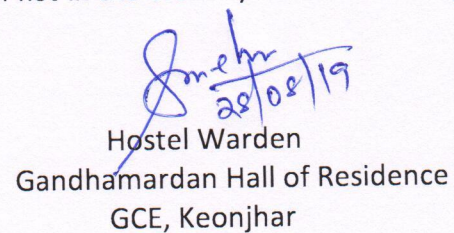 28/08/19
Hostel Warden
Gandhamardan Hall of Residence
GCE, Keonjhar